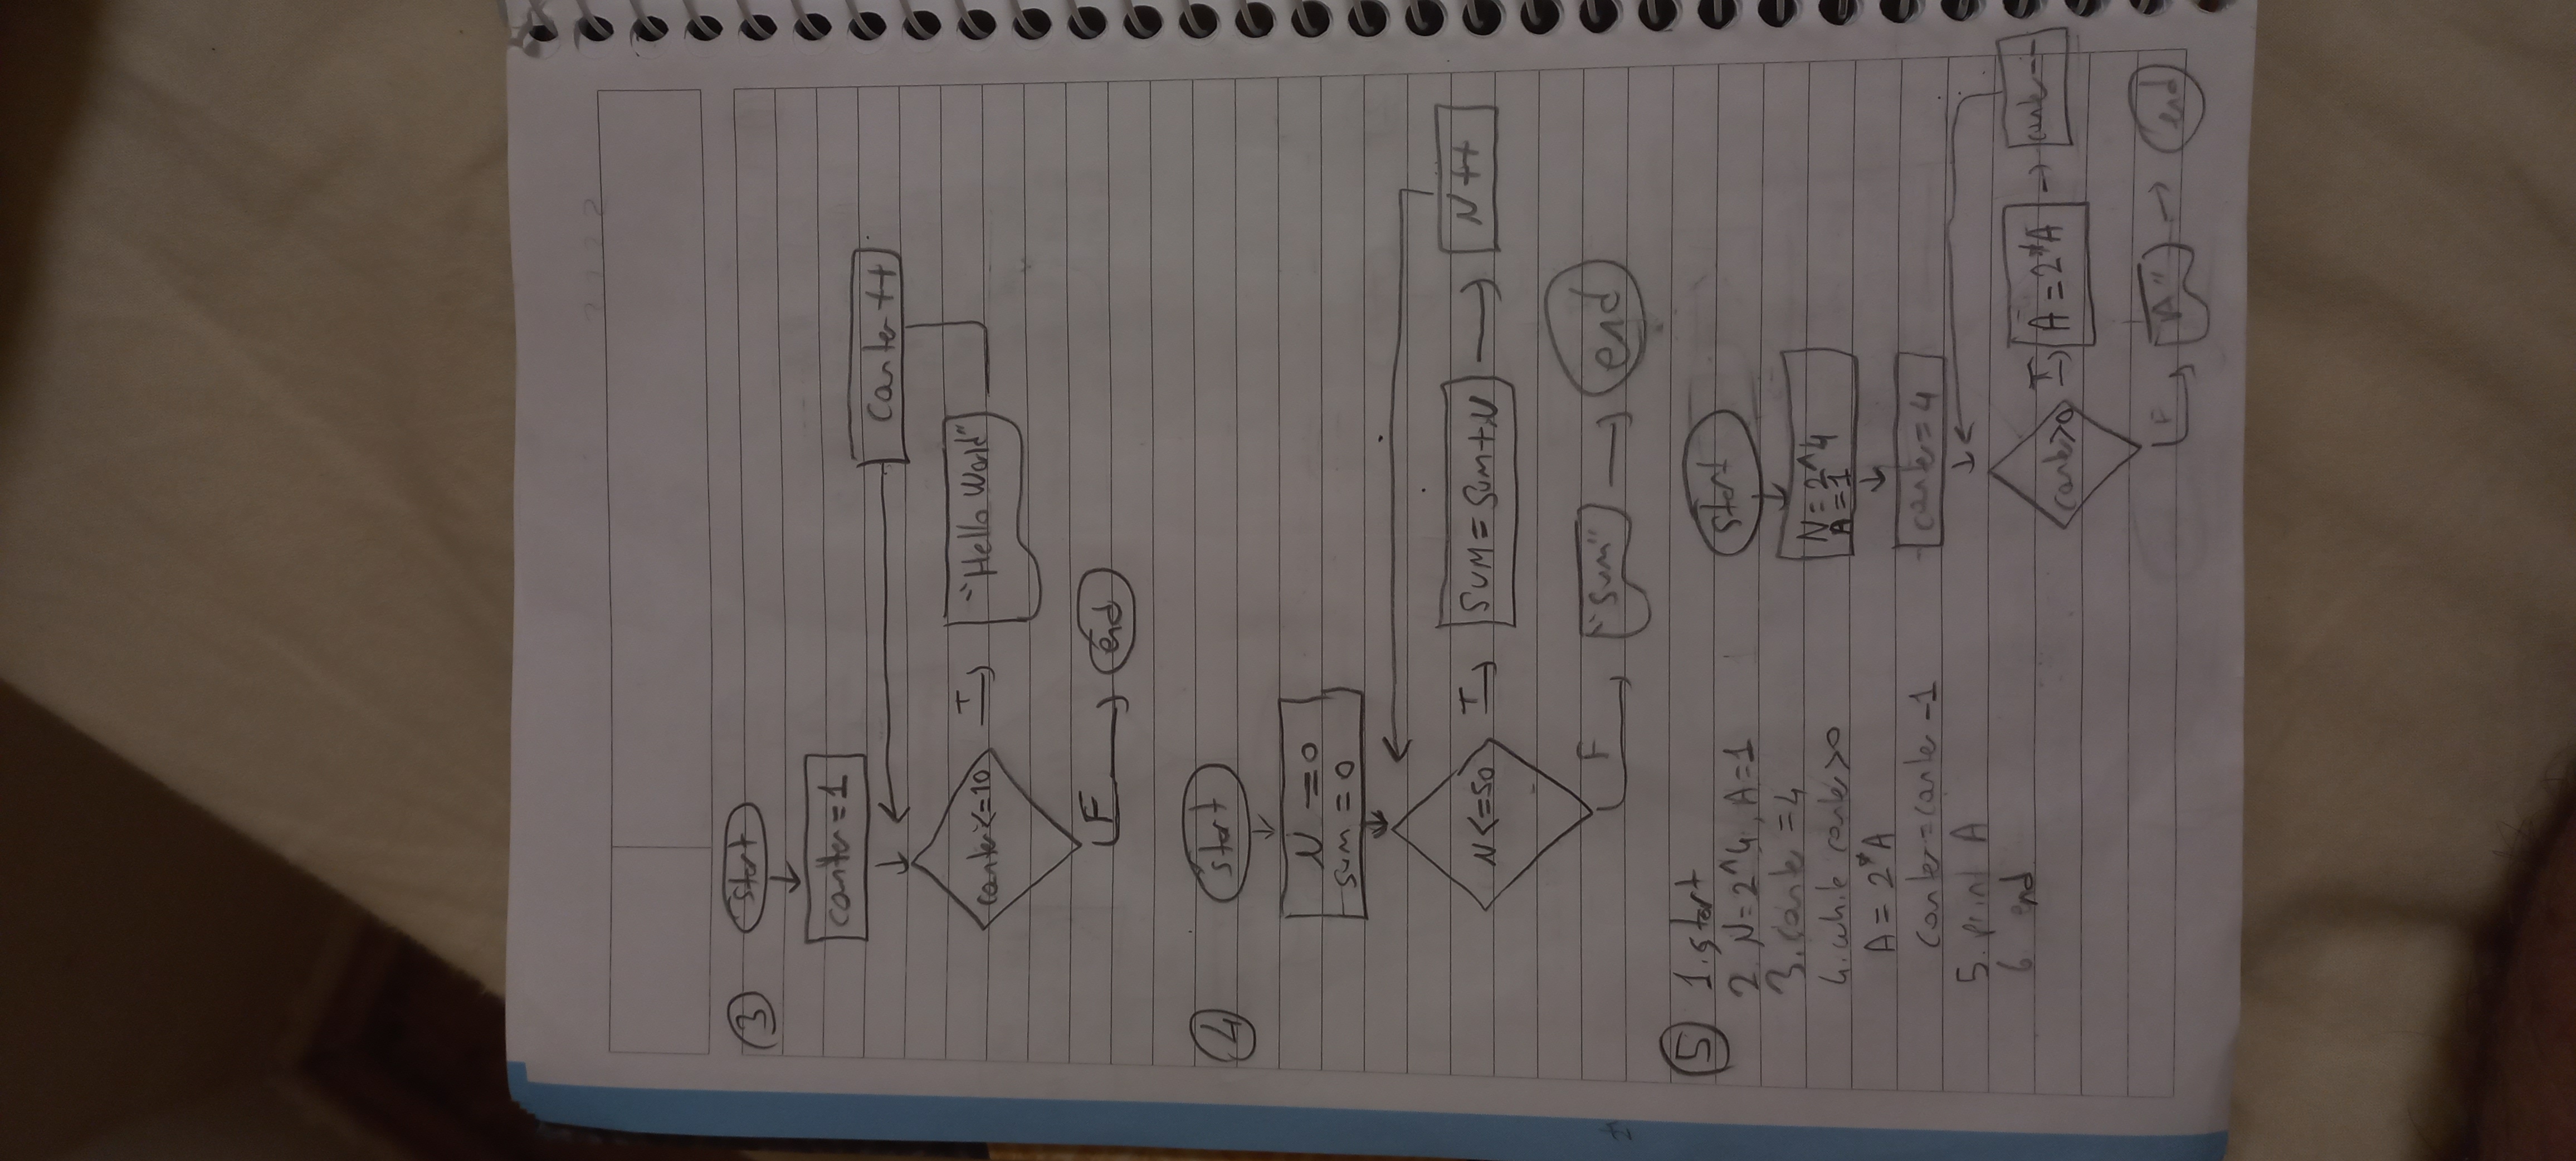 3
start
canter = 1
canter ++
canter <= 10
T
"Hello World"
F
end
4
start
N = 0
sum = 0
N <= 50
T
sum = sum + N
N ++
F
"sum"
end
5
1. start
2. N = 2^4, A = 1
3. cante = 4
4. while canter > 0
A = 2*A
canter = canter - 1
5. print A
6 end
start
N = 2^4
A = 1
cante = 4
cante > 0
T
A = 2*A
cante --
F
"A"
end